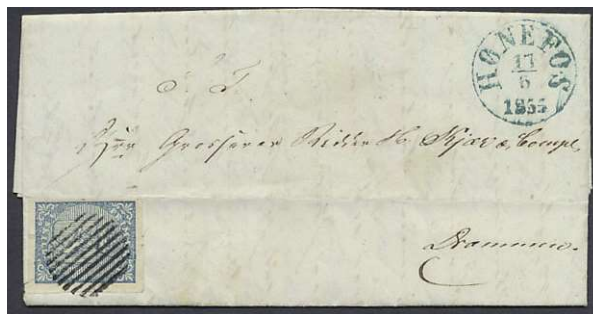 HØNEFOS
17
5
1855
S. T.
Herr Grosserer Ridder
& Compe
Drammen.